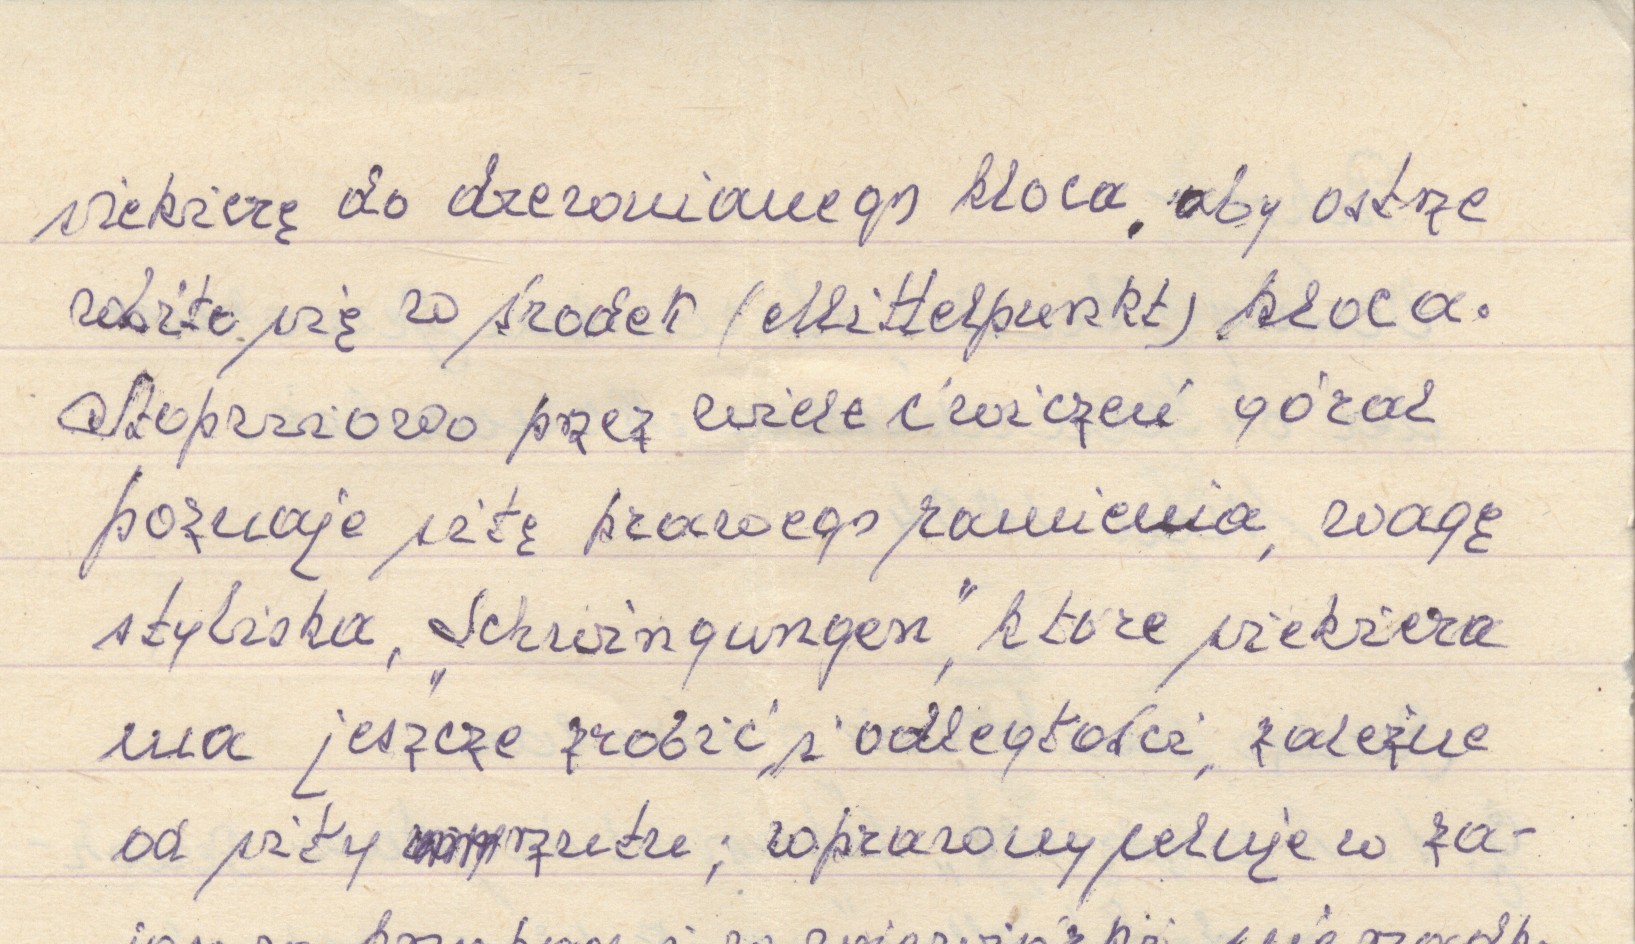 siekierę do drewnianego kloca, aby ostrze
wbiło się w środek (Mittelpunkt) kloca.
Stopniowo przez wiele ćwiczeń góral
poznaje siłę prawego ramienia, wagę
styliska, „Schwingungen", które siekiera
ma jeszcze zrobić, i odległości, zależne
od siły rzutu; wprawny celuje w za-